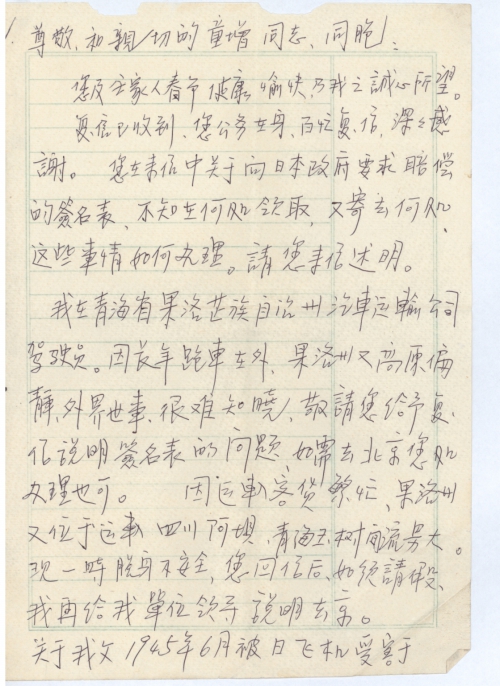 尊敬、和親切的童增同志、同胞：
您及全家人春节健康愉快，乃我之誠心所望。
复信已收到，您公务在身，百忙复信，深々感
謝。 您在来信中关于向日本政府要求賠偿
的簽名表，不知在何処领取，又寄去何処，
这些事情如何办理。請您来信述明。
我在青海省果洛芷族自治州汽車运輸公司
驾驶员。因长年跑車在外，果洛州又高原偏
静，外界世事，很难知曉，敬請您给予复
信説明簽名表的问题，如需去北京您処
办理也可。 因运輸客货繁忙，果洛州
又位于运輸四川阿坝，青海玉树
现一時脱身不安全，您回信后，如须請假，
我再给我單位领导説明去京。
关于我父1945年6月被日飞机受害于